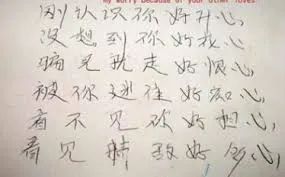 my worry because of your other loves
刚认识你好开心,
没想到你好花心,
骗完就走好恨心,
被你迷住好恶心,
看不见你好担心,
看见情敌好伤心,